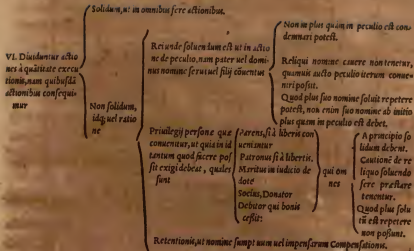 Solidum, ut in omnibus fere actionibus.
VI. Diuiduntur actio
nes à quātitate execu
tionis, nam quibusdā
actionibus consequi
mur
Non solidum,
idq; uel ratio
ne
Rei unde soluendum est ut in actio
ne de peculio, nam pater uel domi
nus nomine serui uel filij cōuentus
Non in plus quàm in peculio est con-
demnari potest.
Reliqui nomine cauere non tenetur,
quamuis aucto peculio iterum conue-
niri possit.
Quod plus suo nomine soluit repetere
potest, non enim suo nomine ab initio
plus quem in peculio est debet.
Priuilegij personæ quæ
conuenitur, ut quia in id
tantum quod facere pos
sit exigi debeat, quales
sunt
Parens, si à liberis con
ueniantur
Patronus si à libertis.
Maritus in iudicio de
dote
Socius, Donator
Debitor qui bonis
cessit:
qui om
nes
A principio so
lidum debent.
Cautionē de re
liquo soluendo
fere præstare
tenentur.
Quod plus solu
tū est repetere
non possunt.
Retentionis, ut nomine sumptuum uel impensarum Compensationis.